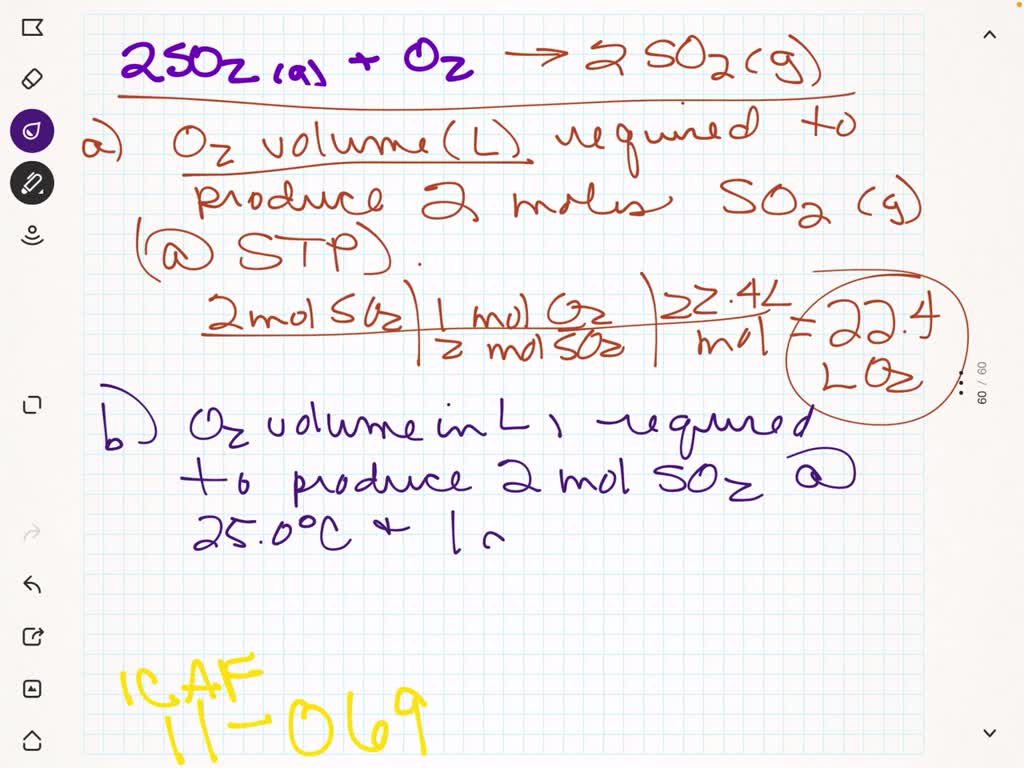 2SO2 (g) + O2 → 2 SO2 (g)
a) O2 volume (L) required to
produce 2 moles SO2 (g)
(@ STP).
2 mol SO2 | 1 mol O2 | 22.4L = 22.4
2 mol SO2 | mol L O2
b) O2 volume in L, required
to produce 2 mol SO2 @
25.0°C + 1 a
60 / 60
ICAF
11-069